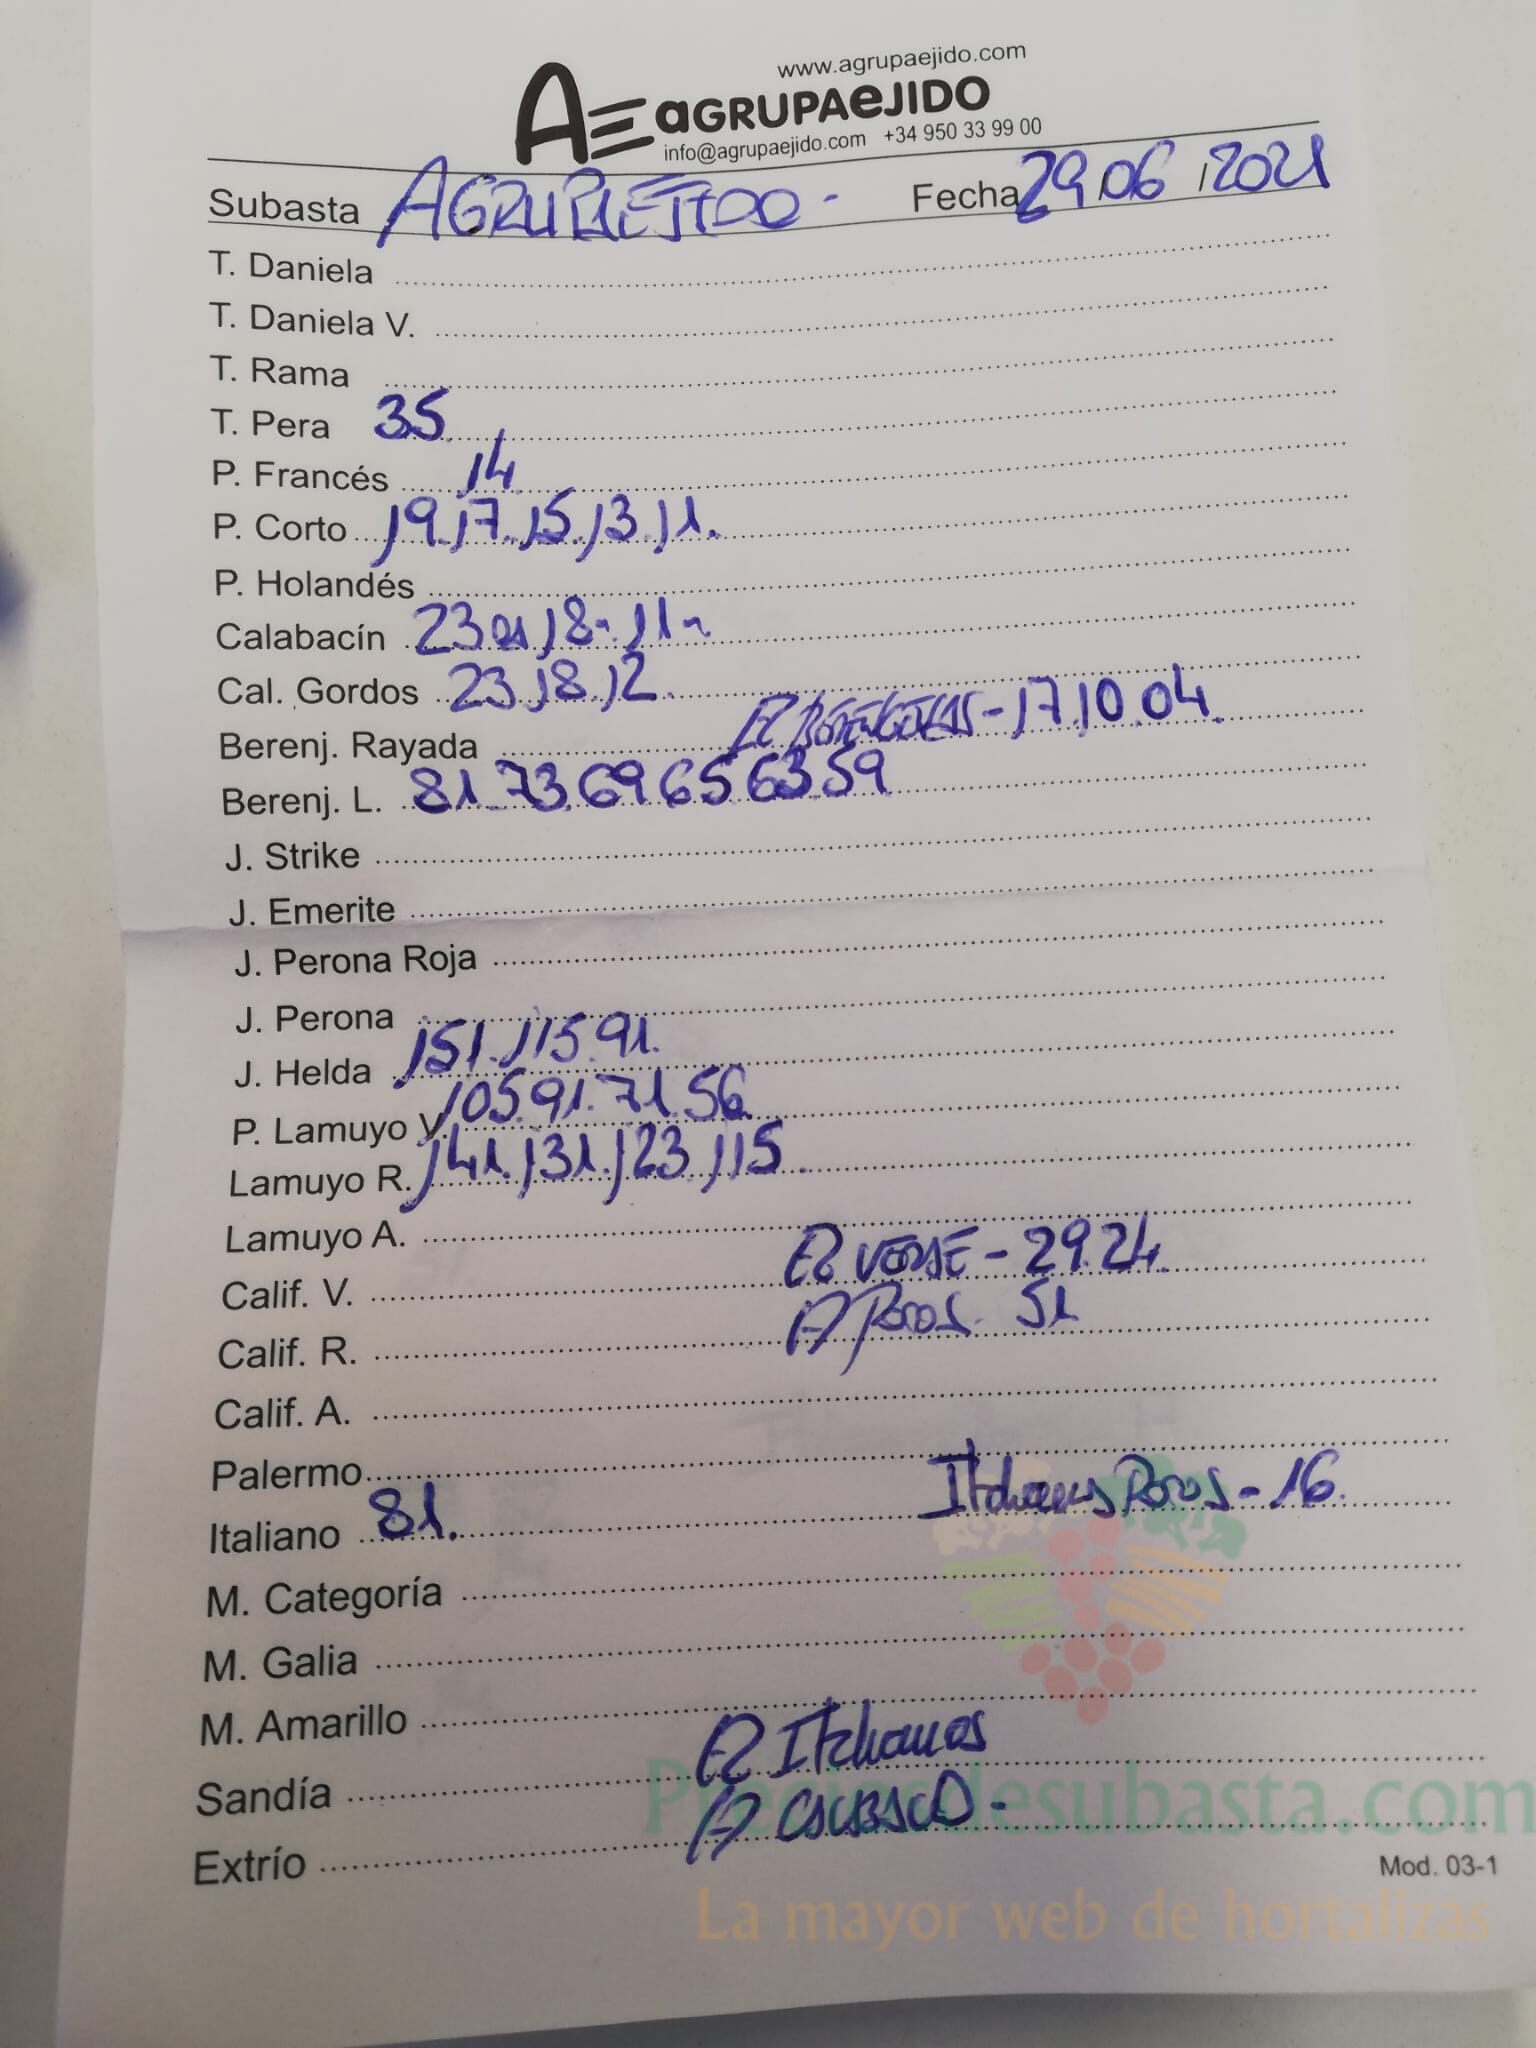 www.agrupaejido.com
AE aGRUPAeJIDO
info@agrupaejido.com +34 950 33 99 00
Subasta AGRUPAEJIDO - Fecha 29/06/2021
T. Daniela
T. Daniela V.
T. Rama
T. Pera 35.
P. Francés 14
P. Corto 19.17.15.13.11.
P. Holandés
Calabacín 23 18- 11-
Cal. Gordos 23.18.12.
Berenj. Rayada - 17.10.04.
Berenj. L. 81.73.69.65.63.59
J. Strike
J. Emerite
J. Perona Roja
J. Perona
J. Helda 151.115.91.
P. Lamuyo V. 105.91.71.56.
Lamuyo R. 141.131.123.115.
Lamuyo A.
Calif. V. - 29.24.
Calif. R. 51
Calif. A.
Palermo
Italiano 81. - 16.
M. Categoría
M. Galia
M. Amarillo
Sandía
Extrío
Preciosdesubasta.com
Mod. 03-1
La mayor web de hortalizas